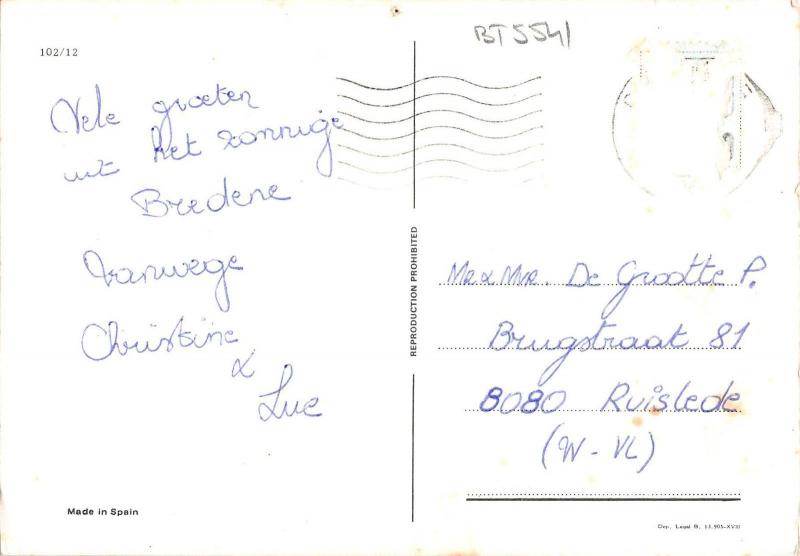 102/12
BT5541
Vele groeten
uit het zonnige
Bredene
Vanwege
Christine
&
Luc
REPRODUCTION PROHIBITED
Mr & Mvr. De Grootte P.
Brugstraat 81
8080 Ruislede
(W-VL)
Made in Spain
Dep. Legal B. 13.905-XVIII